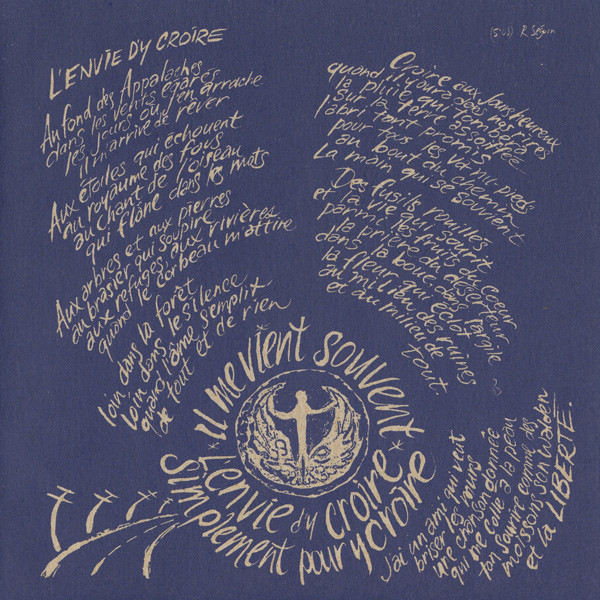 L'ENVIE D'Y CROIRE
(5:05) R. Séguin
Au fond des Appalaches
dans les vents égarés
les jours où j'en arrache
il m'arrive de rêver
Aux étoiles qui échouent
au royaume des fous
au chant de l'oiseau
qui flâne dans les mots
Aux arbres et aux pierres
au brasier qui soupire
aux refuges, aux rivières
quand le corbeau m'attire
loin dans la forêt
loin dans le silence
quand l'âme s'emplit
de tout et de rien
Croire aux jours heureux
quand il pleure dans nos rêves
la pluie qui tombera
sur la terre assoiffée
l'abri tant promis
pour tous les va-nu-pieds
au bout du chemin
La main qui se souvient
Des fusils rouillés
et la vie qui sourit
parmi les fruits de coeur
la prière du déserteur
dans la boue, dans l'argile
la fleur qui éclot
au milieu des ruines
et au milieu de tout.
il me vient souvent
L'envie d'y croire
simplement pour y croire
J'ai un ami qui vent
briser les murs
une chanson donnée
qui me colle à la peau
ton sourire comme des
moissons
et la LIBERTÉ.